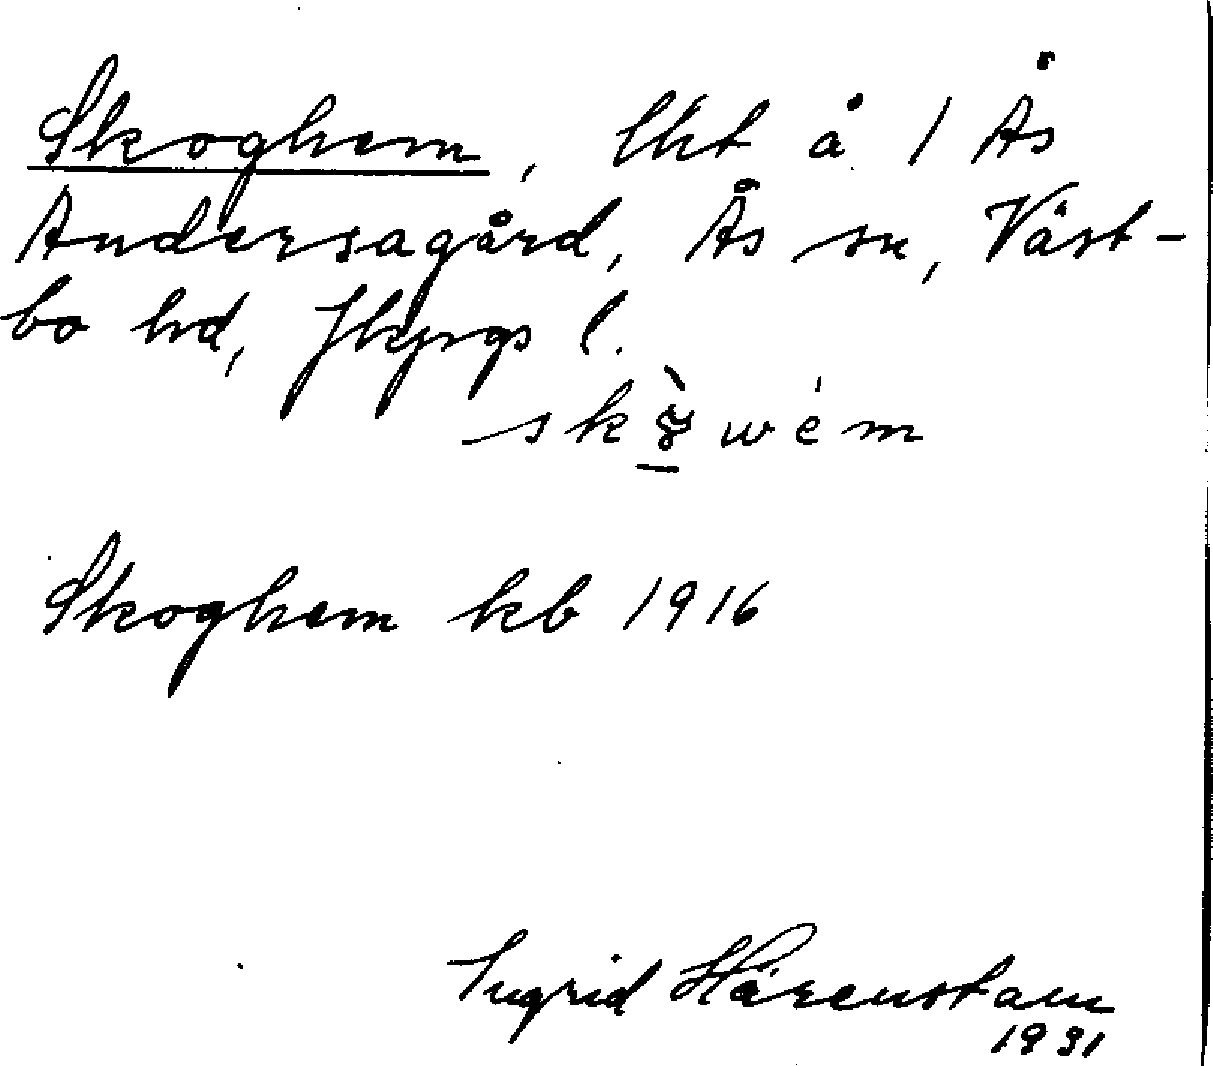 Skoghem, lht å 1 Ås
Andersagård, Ås sn, Väst-
bo hd, Jkpgs l.
Skoghem kb 1916
Ingrid Härenstam
1931